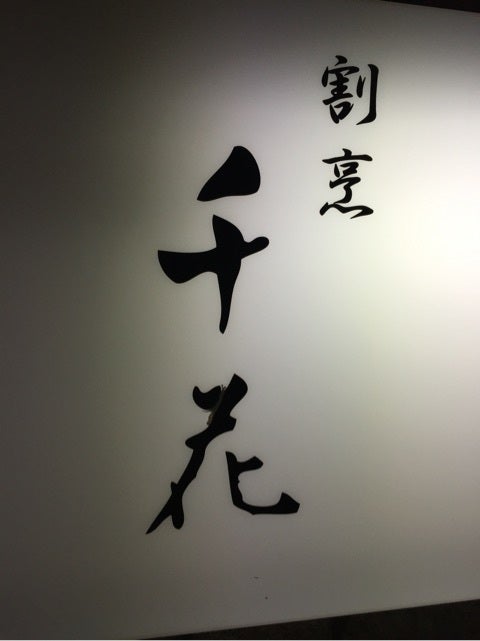 割烹
千花